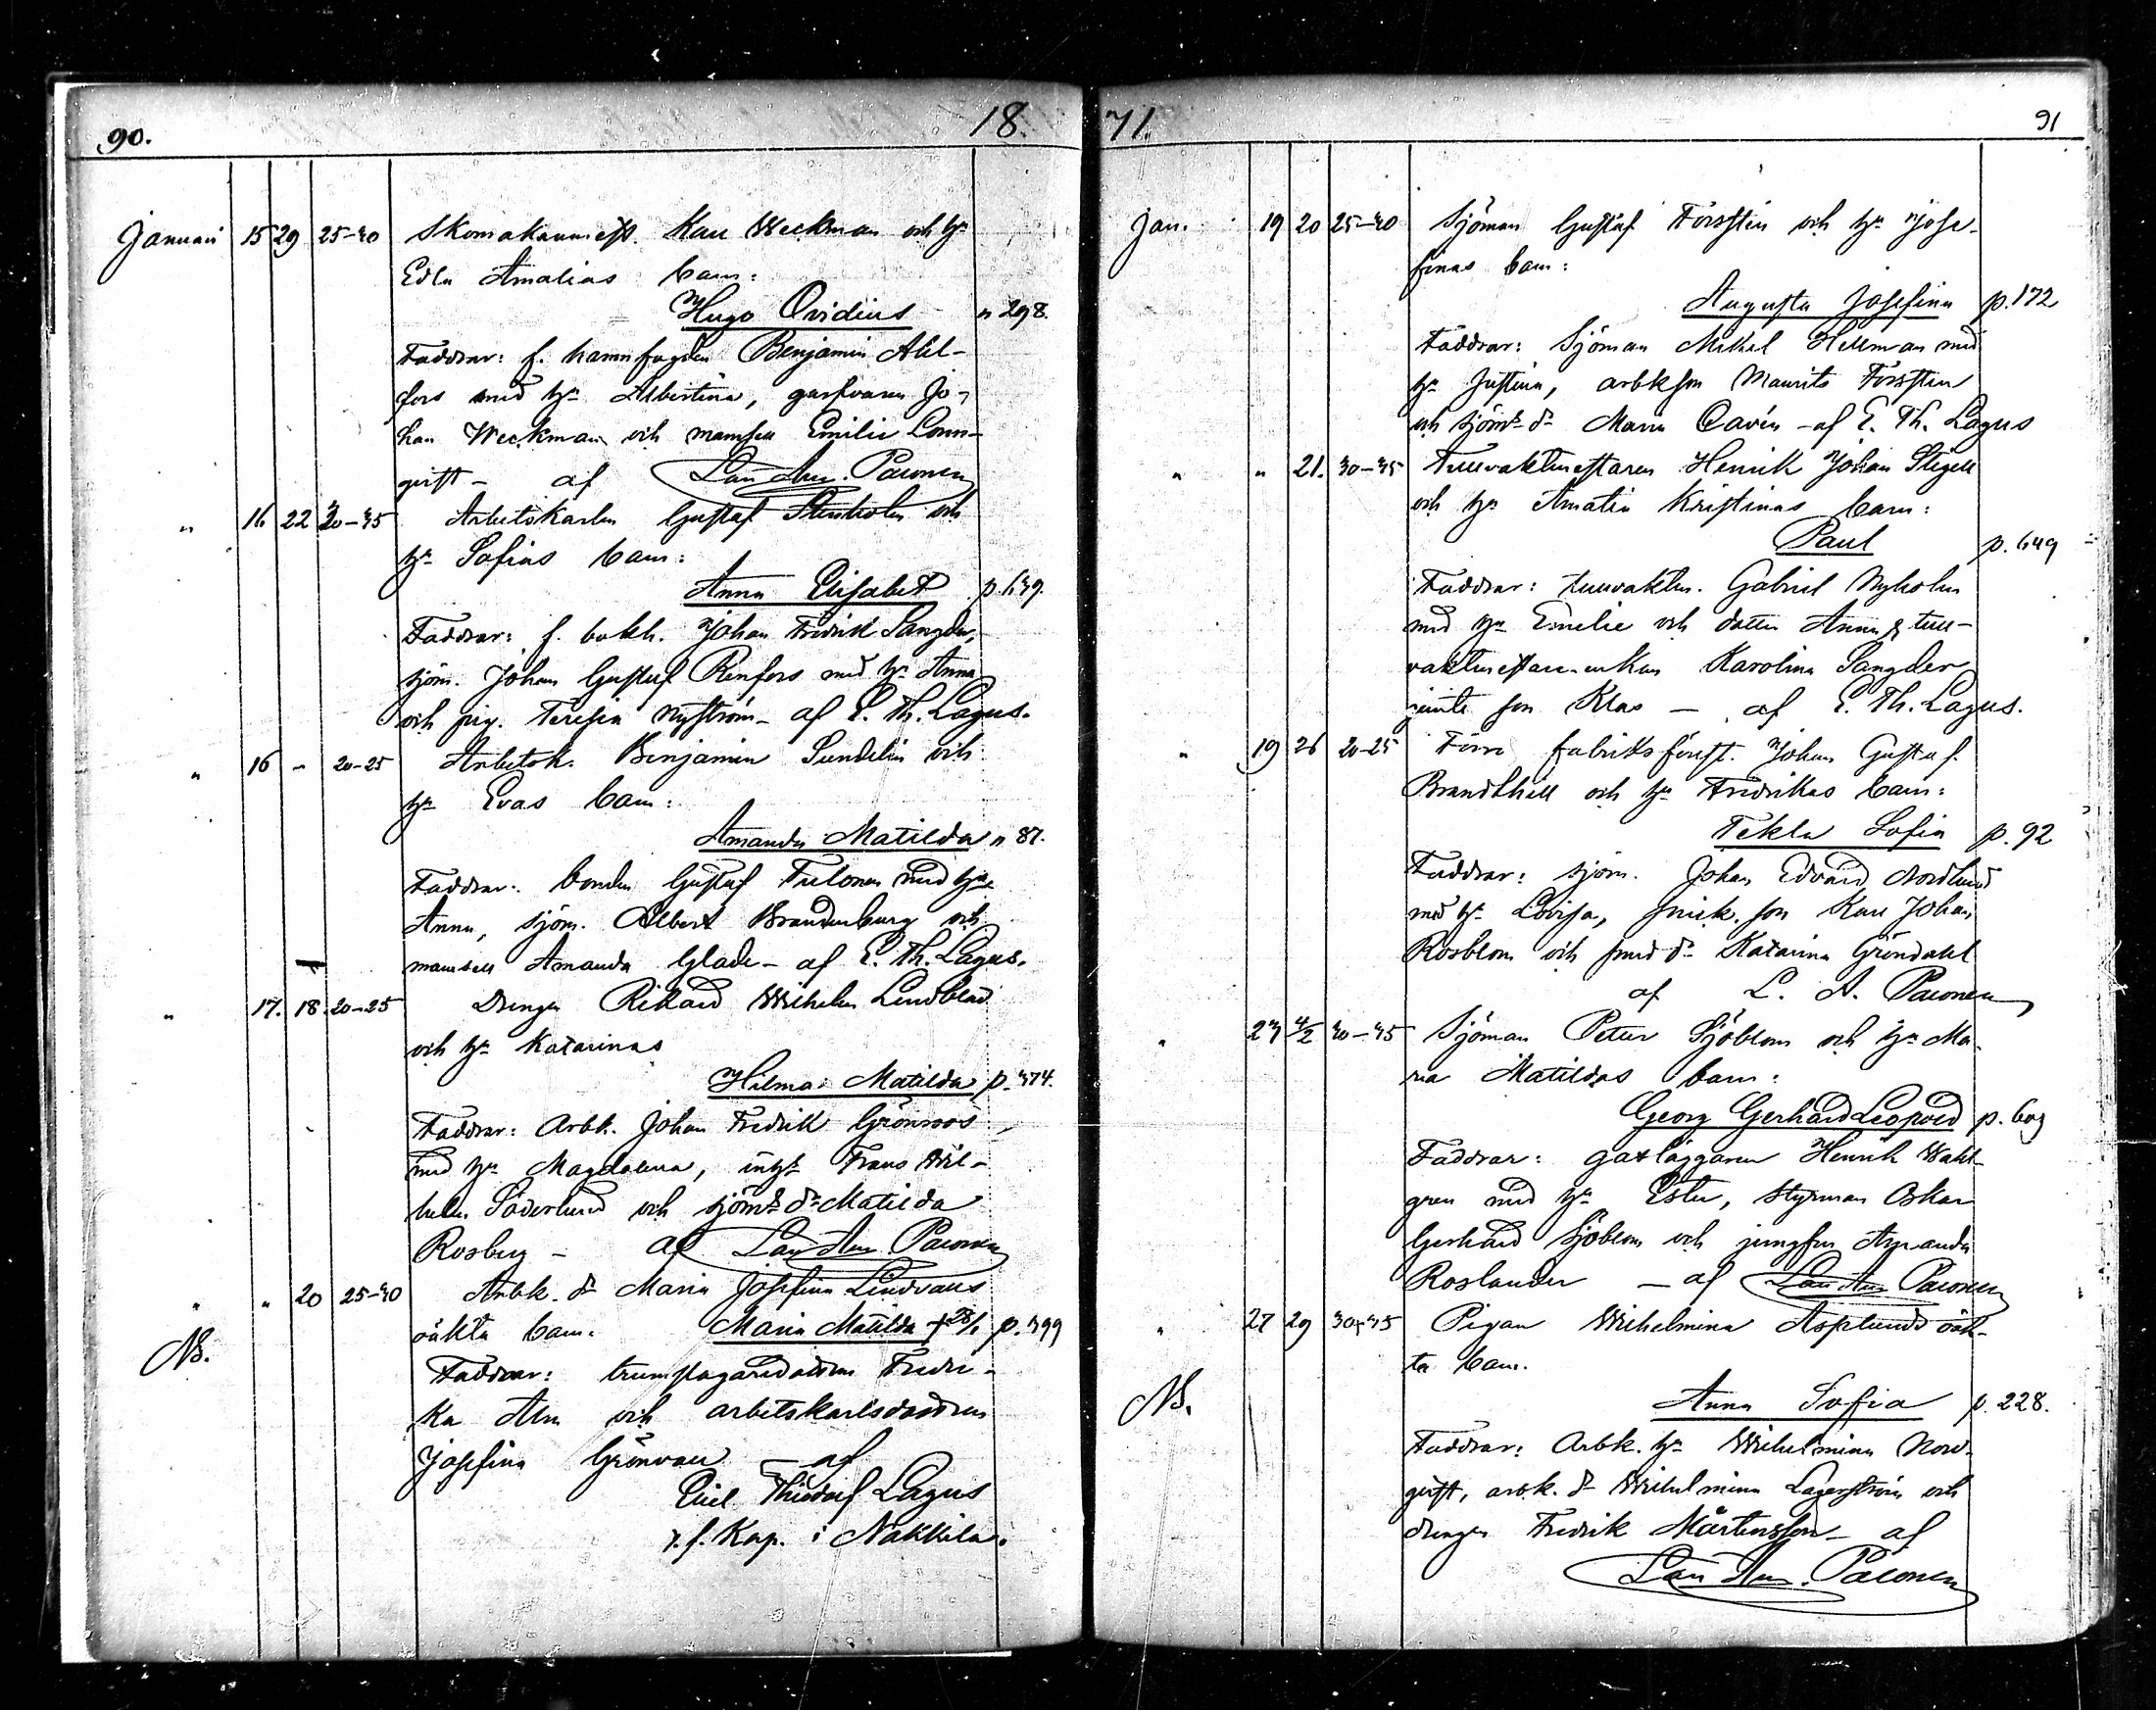 90. 18
Januari 15 29 25-30 Skomakaremest. Karl Weckman och h:u
Edla Amalias barn:
Hugo Ovidius " 298.
Faddrar: f. hamnfogden Benjamin Ahl-
fors med h:u Albertina, garfvaren Jo-
han Weckman och mamsell Emilie Lönn-
qvist – af Lau Aur. Paeonen
" 16 22 30-35 Arbetskarlen Gustaf Stenholm och
h:u Sofias barn:
Anna Elisabet p. 639.
Faddrar: f. bokh. Johan Fredrik Sangder,
sjöm. Johan Gustaf Renfors med h:u Anna
och pig. Teresia Nyström – af E. Th. Lagus.
" 16 – 20-25 Arbetsk. Benjamin Sundelin och
h:u Evas barn:
Amanda Matilda " 87.
Faddrar: bonden Gustaf Tulonen med h:u
Anna, sjöm. Albert Brandenburg och
mamsell Amanda Glade – af E. Th. Lagus.
" 17. 18. 20-25 Drengen Rikard Wilhelm Lindblad
och h:u Katarinas
Hilma Matilda p. 374.
Faddrar: Arbk. Johan Fredrik Grönroos
med h:u Magdalena, inh:s Frans Wil-
helm Söderlund och sjöm:s d:r Matilda
Rosberg – af Lau Aur. Paeonen
" " 20 25-30 Arbk. d:r Maria Josefina Lindvalls
oäkta barn. Maria Matilda + 28/1 p. 399
NB. Faddrar: trumslagaredottren Fredri-
ka Alm och arbetskarlsdottren
Josefina Grönvall – af
Emil Theodorf Lagus
v. f. Kap. i Nakkila.
71. 91
Jan. 19 20 25-30 Sjöman Gustaf Forsstén och h:u Jose-
finas barn:
Augusta Josefina p. 172
Faddrar: Sjöman Mikel Hellman med
h:u Justina, arbkson Maurits Forsstén
och sjöm:s d:r Maria Cavén – af E. Th. Lagus
" " 21. 30-35 Tullvaktmestaren Henrik Johan Stigell
och h:u Amalia Kristinas barn:
Paul p. 649
Faddrar: tullvaktm. Gabriel Nyholm
med h:u Emelie och dotter Anna, tull-
vaktmestare-enkan Karolina Sangder
jemte son Klas – af E. Th. Lagus.
" 19 26 20-25 Förre fabriksförest. Johan Gustaf
Brandthill och h:u Fredrikas barn:
Tekla Sofia p. 92
Faddrar: sjöm. Johan Edvard Nordlund
med h:u Lovisa, snick. son Karl Johan
Rosblom och smed d:r Katarina Gröndahl
af L. A. Paeonen
" 23 4/2 30-35 Sjöman Petter Sjöblom och h:u Ma-
ria Matildas barn:
Georg Gerhard Leopold p. 603
Faddrar: gatläggaren Henrik Wahl-
gren med h:u Ester, styrman Oskar
Gerhard Sjöblom och jungfru Amanda
Roslander – af Lau Aur. Paeonen
" 27 29 30-35 Pigan Wilhelmina Asplunds oäk-
ta barn.
NB. Anna Sofia p. 228.
Faddrar: Arbk. h:u Wilhelmina Nord-
qvist, arbk. d:r Wilhelmina Lagerström och
drengen Fredrik Mårtensson – af
Lau Aur. Paeonen